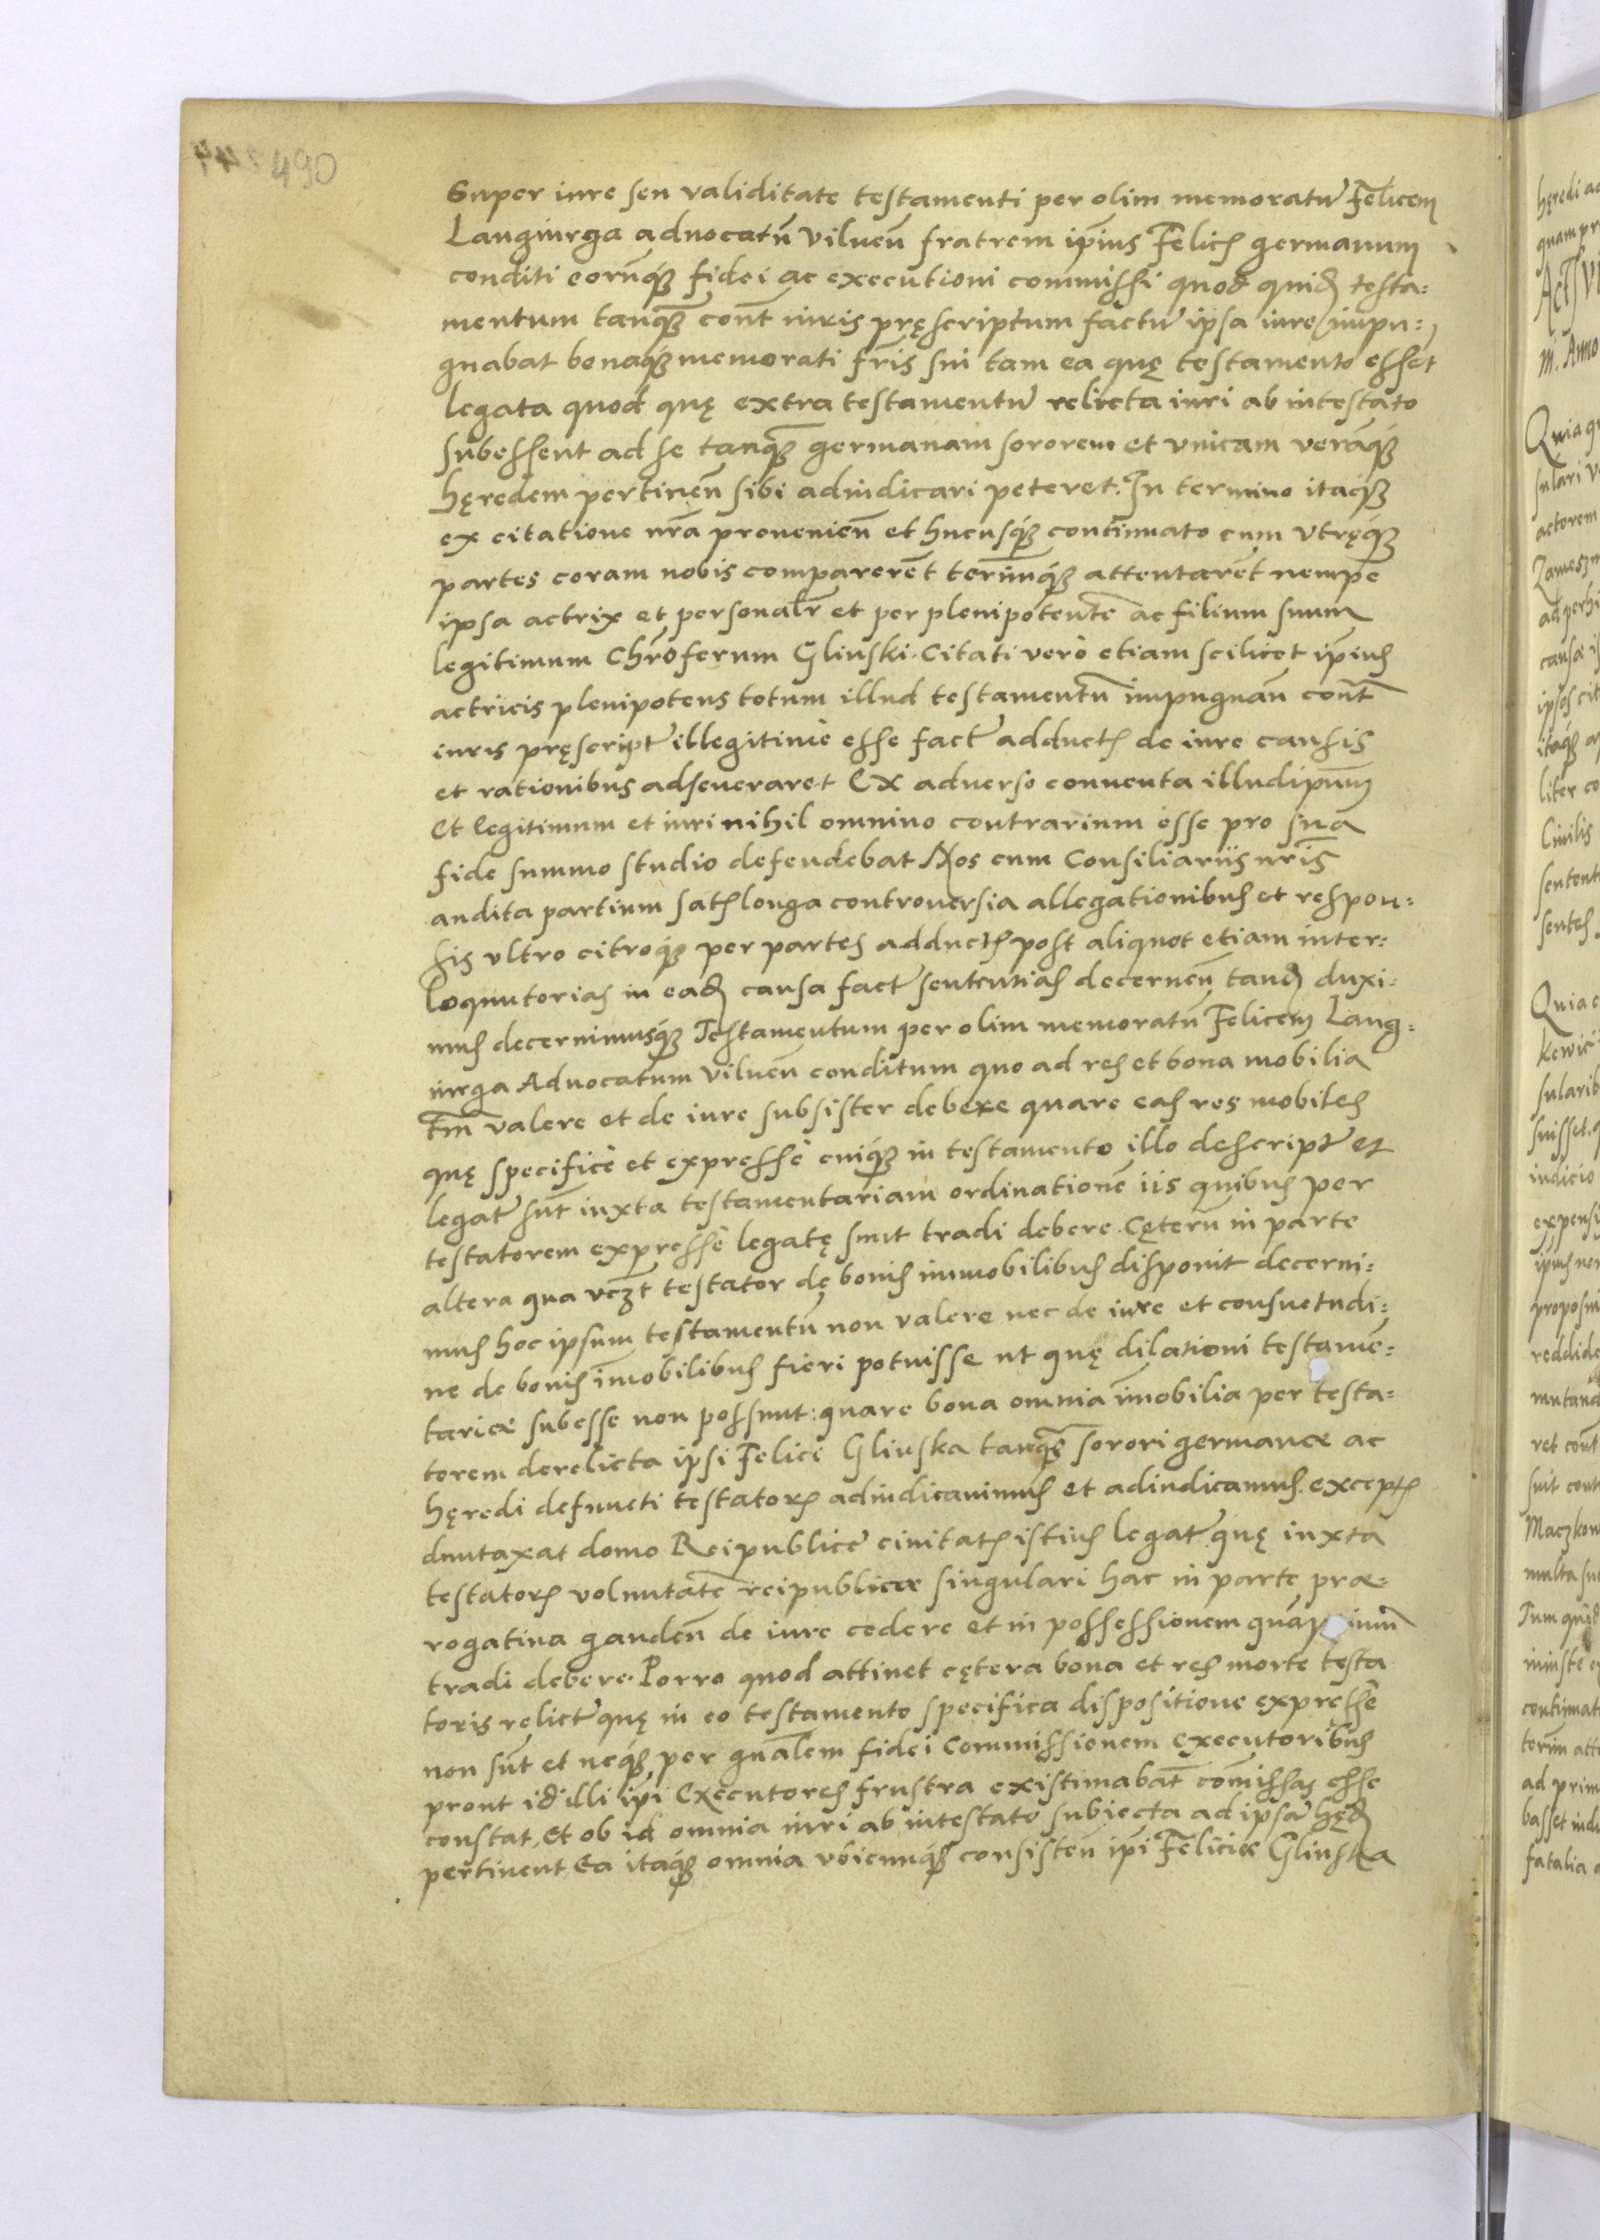 490
Super iure seu validitate testamenti per olim memoratũ Felicem
Langiurga aduocatũ Vilneñ fratrem ip̃ius Felicis germanum
conditi eorũq; fidei ac executioni commissi quod quid testa=
mentum tanq̃ cont̃ iuris pręscriptum factũ ipsa iure impu=
gnabat bonaq; memorati fr̃is sui tam ea quę testamento essẽt
legata quod quę extra testamentũ relicta iuri ab intestato
subessent ad se tanq̃ germanam sororem et vnicam veràq;
hęredem pertineñ sibi adiudicari peteret. In termino itaq;
ex citatione nr̃a prouenieñ et hucusq; continuato cum vtręq;
partes coram nobis comparerẽt terminũq; attentarẽt nempe
ipsa actrix et personalr̃ et per plenipotentẽ ac filium suum
legitimum Chr̃oferum Gliuski. Citati verò etiam scilicet ip̃ius
actricis plenipotens totum illud testamentũ impugnañ cont̃
iuris pręscriptũ illegitimè esse factũ adductis de iure causis
et rationibus adseueraret Ex aduerso conuenta illud ip̃um
et legitimum et iuri nihil omnino contrarium esse pro sua
fide summo studio defendebat Nos cum Consiliariis nr̃is
audita partium satis longa controuersia allegationibus et respon=
sis vltro citroq; per partes adductis post aliquot etiam inter=
loquutorias in ead causa fact sententias decerneñ tand duxi=
mus decernimusq; Testamentum per olim memoratũ Felicem Lang=
iurga Aduocatum Vilneñ conditum quo ad res et bona mobilia
tm̃ valere et de iure subsister debere quare eas res mobiles
quę specificè et expressè cuiq; in testamento illo descript et
legat sũt iuxta testamentariam ordinationẽ iis quibus per
testatorem expressè legatę sunt tradi debere. Cęterũ in parte
altera qua vczt testator de bonis immobilibus disponit decerni=
mus hoc ipsum testamentũ non valere nec de iure et consuetudi=
ne de bonis im̃obilibus fieri potuisse ut quę dilationi testamẽ=
tariæ subesse non possunt: quare bona omnia im̃obilia per testa=
torem derelicta ipsi Felici Gliuska tanq̃ sorori germanæ ac
hęredi defuncti testatoris adiudicauimus et adiudicamus. exceptis
dumtaxat domo Reipublicę ciuitatis istius legat quę iuxta
testatoris voluntatẽ reipublicæ singulari hac in parte præ=
rogatiua gaudeñ de iure cedere et in possessionem
tradi debere. Porro quod attinet cętera bona et res morte testa
toris relict quę in eo testamento specifica dispositione expressè
non sũt et neq; per gnãlem fidei Commissionem Executoribus
prout id illi ip̃i Executores frustra existimabãt com̃issas esse
constat, et ob id omnia iuri ab intestato subiecta ad ipsã hęd
pertinent Ea itaq; omnia vbicunq; consisteñ ip̃i Feliciæ Gliuska